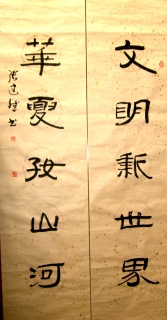 文明新世界
華夏好山河